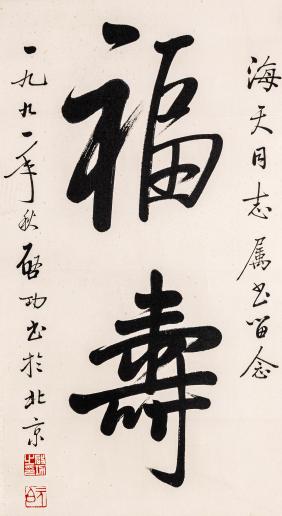 海天同志属书留念
福寿
一九九一年秋启功书於北京